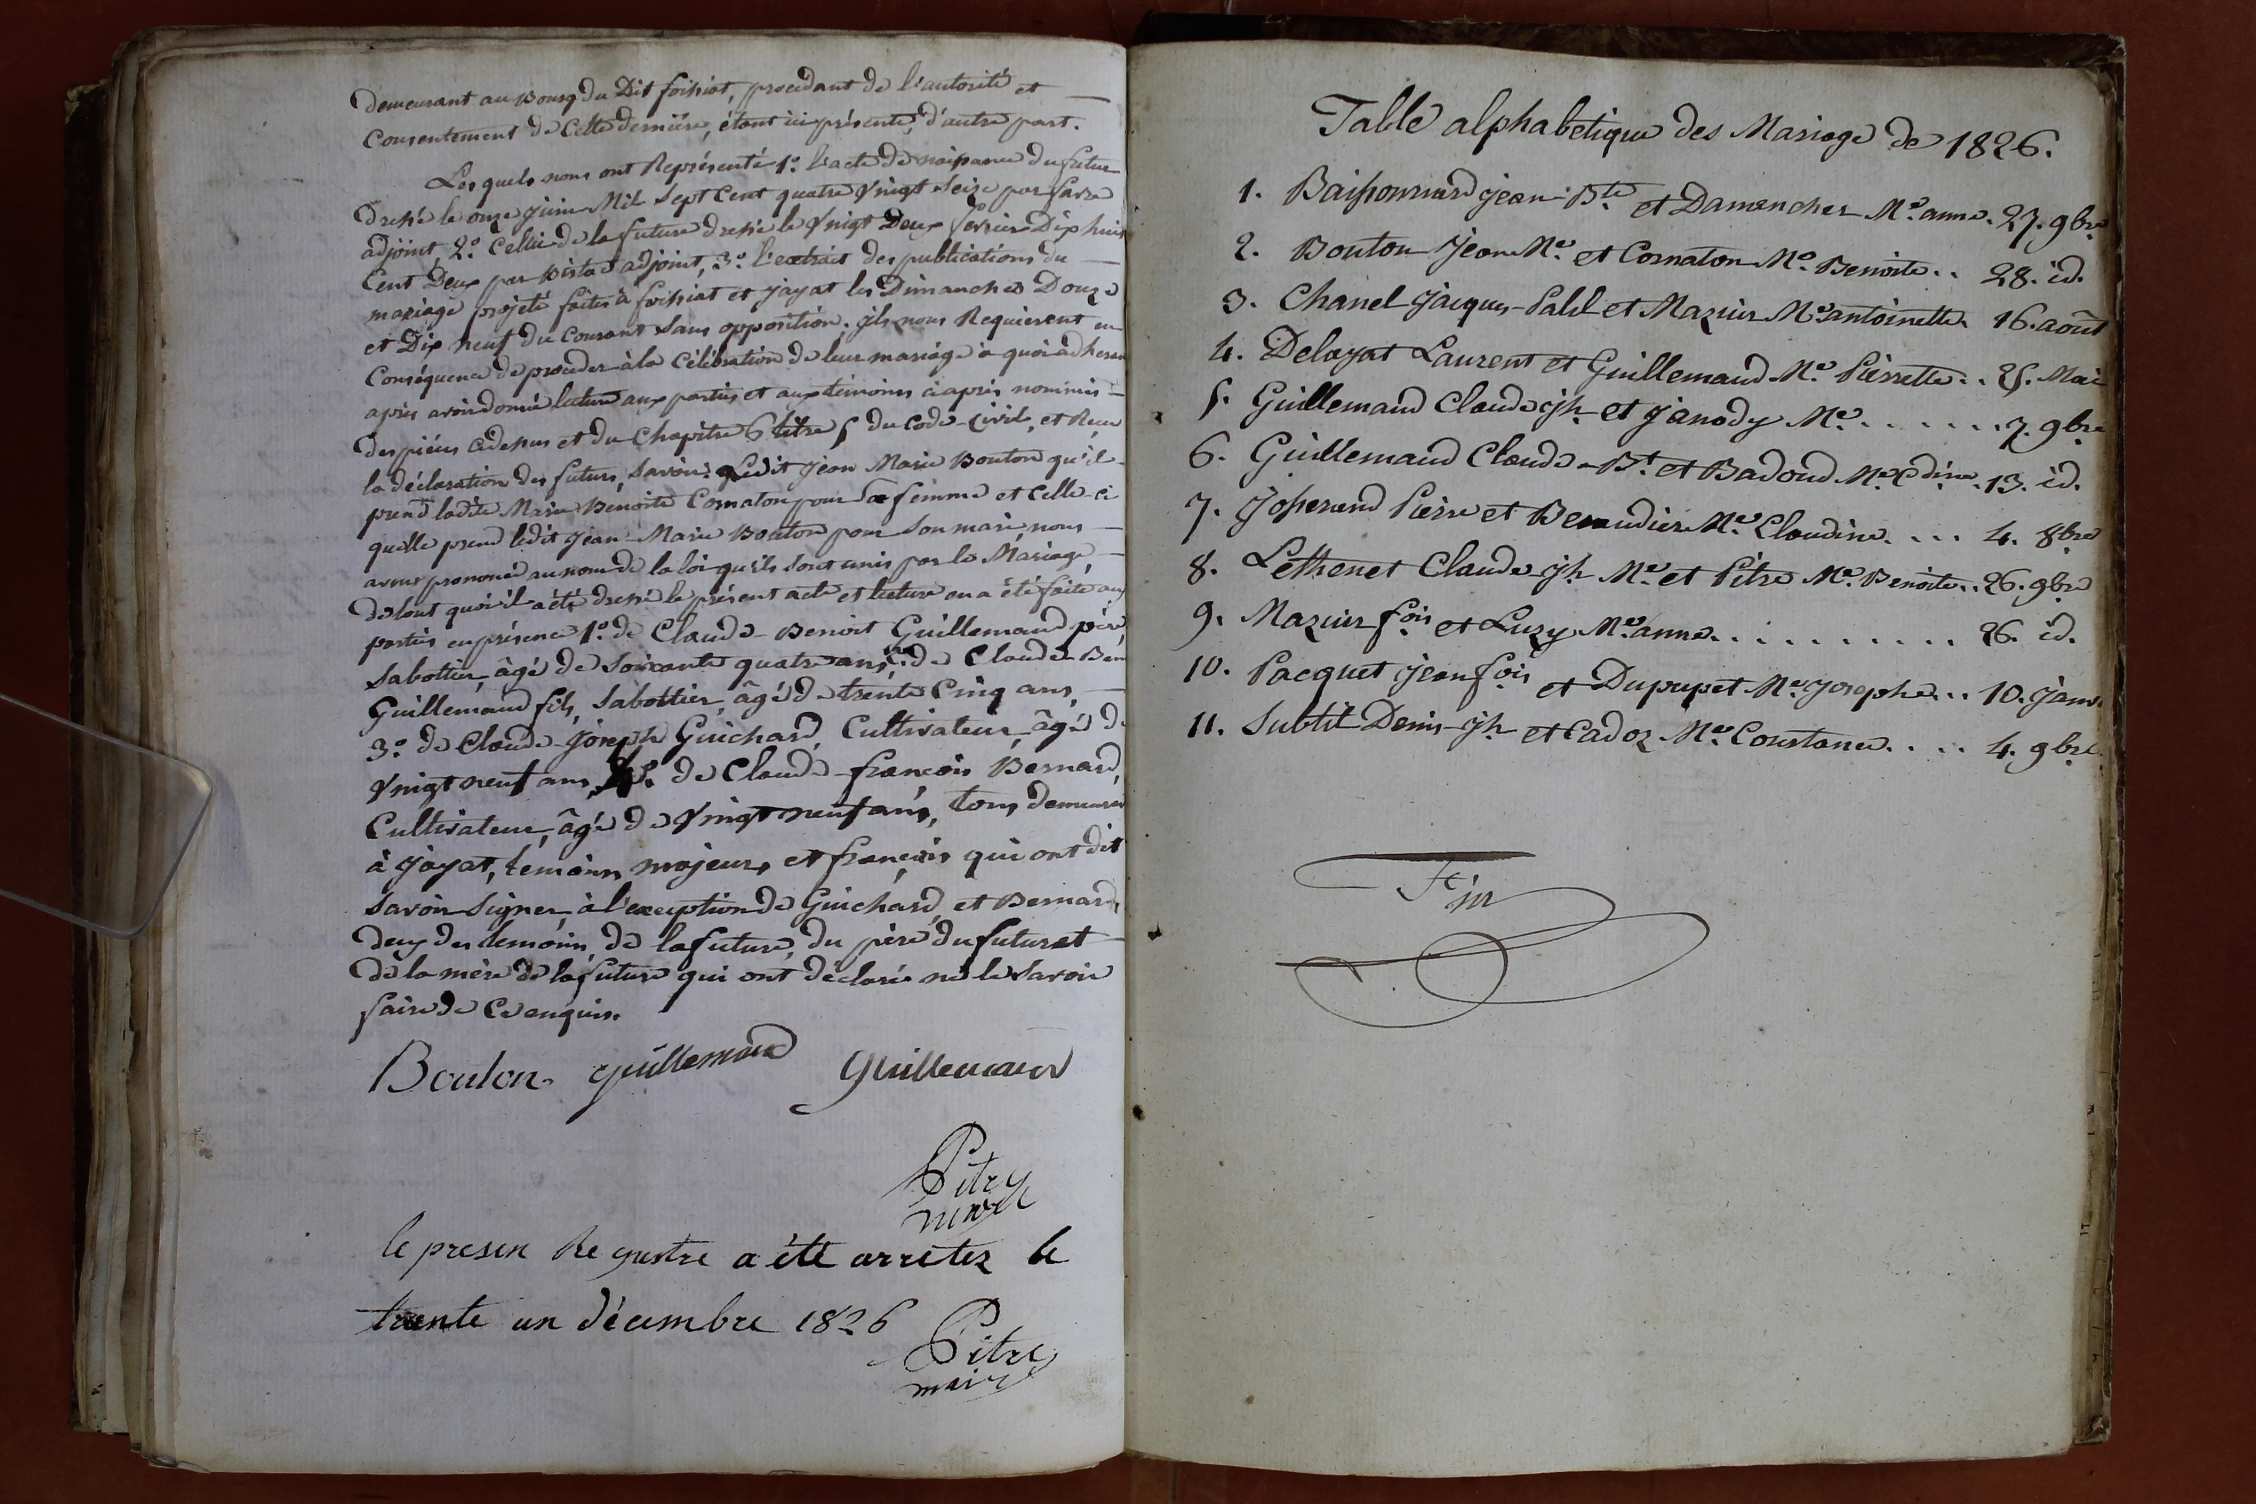 demeurant au Bourg du Dit foissiat, procédant de l'autorité et
Consentement de Cette dernière, étant ici présente, d'autre part.
Les quels nous ont Représenté 1.° l'acte de naissance du futur
Dressé le onze juin Mil Sept Cent quatre Vingt Seize par favre
adjoint, 2.° Celui de la future dressé le Vingt Deux fevrier Dix huit
Cent Deux par adjoint, 3.° l'extrait des publications du
mariage projeté faites à foissiat et jayat les Dimanches Douze
et Dix neuf du Courant Sans opposition. ils nous Requierent en
Conséquence de procéder à la Célébration de leur mariage à quoi adherant
après avoir donné lecture aux parties et aux témoins ci après nommés
des pièces cidessus et du Chapitre 6 titre 5 du Code Civil, et Reçu
la déclaration des futurs, Savoir: Ledit jean Marie Bouton qu'il
prend ladite Marie Benoite Cornaton pour Sa femme et Celle-ci
quelle prend ledit jean Marie Bouton pour Son mari, nous
avons prononcé au nom de la loi qu'ils Sont unis par le Mariage,
de tout quoi il a été dressé le présent acte et lecture en a été faite aux
parties en présence 1.° de Claude-Benoit Guillemaud père,
Sabottier, âgé de Soixante quatre ans, 2.° de Claude Ben
Guillemaud fils, Sabottier, âgé de trente Cinq ans,
3.° de Claude-Joseph Guichard, Cultivateur, âgé de
Vingt neuf ans, 4.° de Claude-françois Bernard,
Cultivateur, âgé de Vingt neuf ans, tous demeurant
à jayat, temoins majeurs et français qui ont dit
Savoir Signer, à l'exception de Guichard et Bernard,
deux des temoins, de la future, du père du futur et
de la mère de la future qui ont déclaré ne le Savoir
faire de Ce enquis.
Bouton. guillemaud guillemaud
Pitre
maire
le presen Regustre a été arretez le
trente un décembre 1826
Pitre
maire
Table alphabetique des Mariage de 1826.
1. Baissonnard jean-B.te et Damencher M.e anne. 27. 9bre
2. Bouton Jean M.e et Cornaton M.e Benoite.. 28. id.
3. Chanel Jacques-Paul et Mazuir M.e antoinette. 16. août
4. Delayat Laurent et Guillemaud M.e Pierrette.. 25. Mai
5. Guillemaud Claude jh. et Janody M.e....... 7. 9bre
6. Guillemaud Claude-B.t et Badoud M.e Cdine. 13. id.
7. Josserand Pierre et Beraudier M.e Claudine.... 4. 8bre
8. Lethenet Claude-jh. M.e et Pitre M.e Benoite.. 26. 9bre
9. Mazuir fois et Luzy M.e anne........... 26. id.
10. Pacquet jean fois et Dupupet M.e Josephe... 10. janv.
11. Subtil Denis-jh. et Cadoz M.e Constance.... 4. 9bre.
Fin